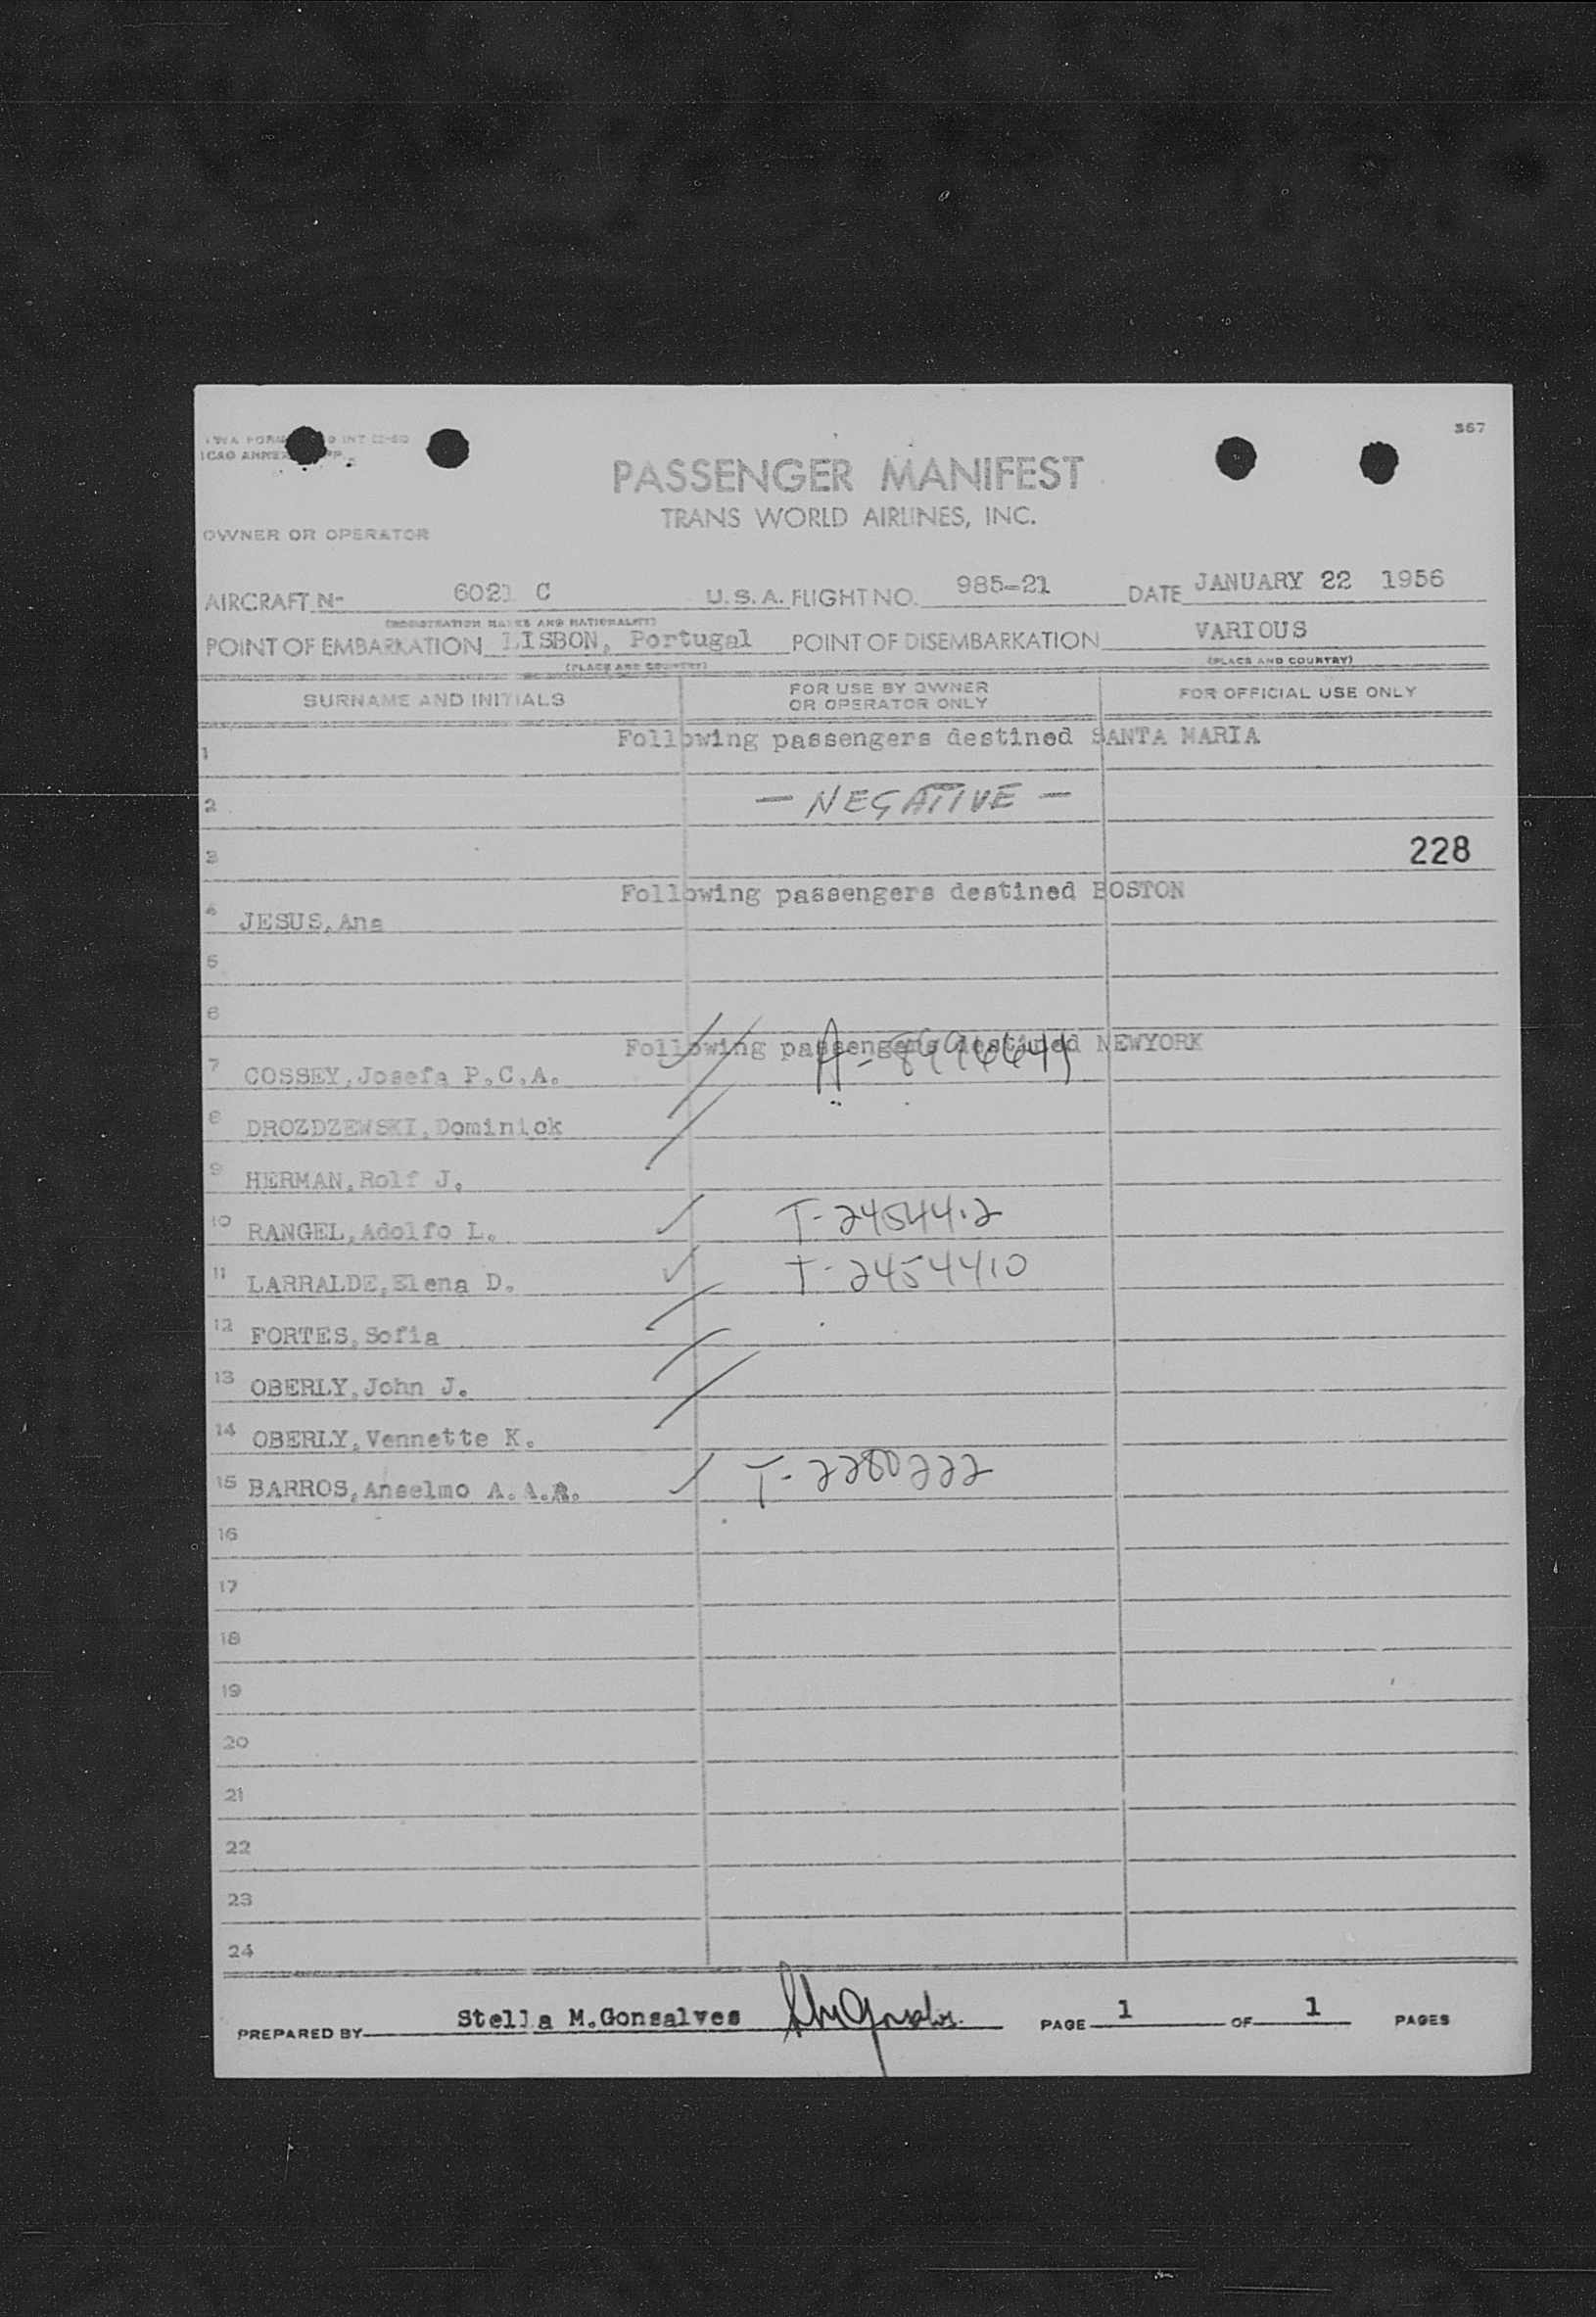 367
ICAO ANNEX
PASSENGER MANIFEST
TRANS WORLD AIRLINES, INC.
OWNER OR OPERATOR
AIRCRAFT N- 6021 C U.S.A. FLIGHT NO. 985-21 DATE JANUARY 22 1956
(REGISTRATION MARKS AND NATIONALITY)
POINT OF EMBARKATION LISBON, Portugal POINT OF DISEMBARKATION VARIOUS
(PLACE AND COUNTRY) (PLACE AND COUNTRY)
SURNAME AND INITIALS FOR USE BY OWNER OR OPERATOR ONLY FOR OFFICIAL USE ONLY
Following passengers destined SANTA MARIA
1
2 - NEGATIVE -
3 228
Following passengers destined BOSTON
4 JESUS,Ana
5
6
Following passengers destined NEWYORK
7 COSSEY,Josefa P.C.A.
8 DROZDZEWSKI,Dominick
9 HERMAN,Rolf J.
10 RANGEL,Adolfo L. T-2454412
11 LARRALDE,Elena D. T-2454410
12 FORTES,Sofia
13 OBERLY,John J.
14 OBERLY,Vennette K.
15 BARROS,Anselmo A.A.R. T-2280222
16
17
18
19
20
21
22
23
24
PREPARED BY Stella M.Gonsalves PAGE 1 OF 1 PAGES